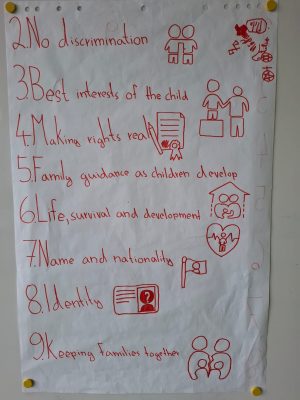 2. No discrimination
3. Best interests of the child
4. Making rights real
5. Family guidance as children develop
6. Life, survival and development
7. Name and nationality
8. Identity
9. Keeping families together